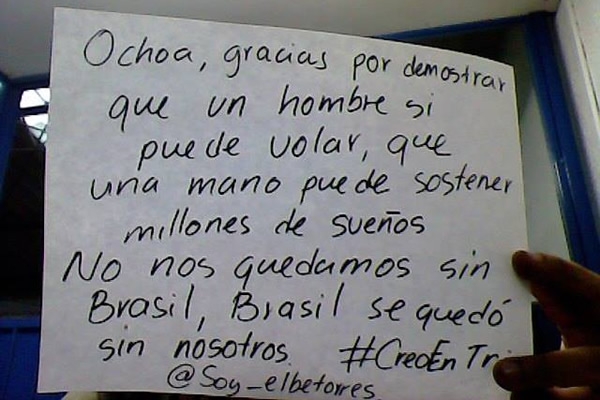 Ochoa, gracias por demostrar
que un hombre si
puede volar, que
una mano puede sostener
millones de sueños
No nos quedamos sin
Brasil, Brasil se quedó
sin nosotros. #CreoEnTri
@Soy_elbetorres